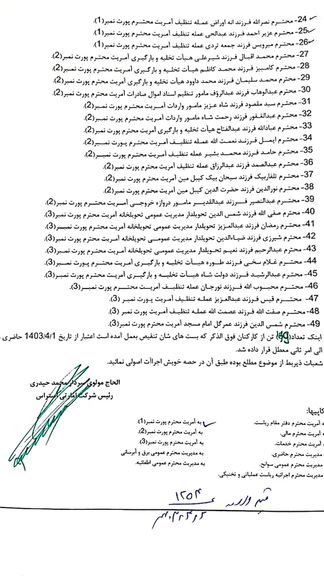 24- محترم نصرالله فرزند انه اوراض عمله تنظیف آمریت محترم پورت نمبر(1).
25- محترم عزیز احمد فرزند عبدالحی عمله تنظیف آمریت محترم پورت نمبر(1).
26- محترم میرویس فرزند جمعه تردی عمله تنظیف آمریت محترم پورت نمبر(1).
27- محترم محمد اقبال فرزند شیرعلی هیأت تخلیه و بارگیری آمریت محترم پورت نمبر(2).
28- محترم کامبیز فرزند محمد کاظم هیأت تخلیه و بارگیری آمریت محترم پورت نمبر(2).
29- محترم محمد سلیمان فرزند محمد داوود هیأت تخلیه و بارگیری آمریت محترم پورت نمبر(2).
30- محترم عبدالوهاب فرزند عبدالرؤف مامور تنظیم اسناد اموال صادرات آمریت محترم پورت نمبر(2).
31- محترم سید مقصود فرزند شاه عزیز مامور واردات آمریت محترم پورت نمبر(2).
32- محترم عبدالغفور فرزند رحمت شاه مامور واردات آمریت محترم پورت نمبر(2).
33- محترم عبادالله فرزند عبدالفتاح هیأت تخلیه و بارگیری آمریت محترم پورت نمبر(2).
34- محترم ایمل فرزند نعمت الله عمله تنظیف آمریت محترم پورت نمبر(2).
35- محترم حامد فرزند محمد بشیر عمله تنظیف آمریت محترم پورت نمبر(2).
36- محترم عبدالصمد فرزند عبدالرزاق عمله تنظیف آمریت محترم پورت نمبر(2).
37- محترم تلفاربیک فرزند سبحان بیک کیبل مین آمریت محترم پورت نمبر(2).
38- محترم نورالدین فرزند حضرت الدین کیبل مین آمریت محترم پورت نمبر(2).
39- محترم عبدالنصیر فرزند عبدالقدیر مامور دروازه خروجی آمریت محترم پورت نمبر(2).
40- محترم صفی الله فرزند شمس الدین تحویلدار مدیریت عمومی تحویلخانه آمریت محترم پورت نمبر(3).
41- محترم رمضان فرزند عبدالعزیز تحویلدار مدیریت عمومی تحویلخانه آمریت محترم پورت نمبر(3).
42- محترم شیرزی فرزند ضیاءالدین تحویلدار مدیریت عمومی تحویلخانه آمریت محترم پورت نمبر(3).
43- محترم عبدالرحیم فرزند نعیم تحویلدار مدیریت عمومی تحویلخانه آمریت محترم پورت نمبر(3).
44- محترم غلام سخی فرزند طوره هیأت تخلیه و بارگیری آمریت محترم پورت نمبر(3).
45- محترم عبدالرشید فرزند دولت شاه هیأت تخلیه و بارگیری آمریت محترم پورت نمبر(3).
46- محترم محبوب الله فرزند نورجان عمله تنظیف آمریت محترم پورت نمبر(3).
47- محترم قیس فرزند عبدالعزیز عمله تنظیف آمریت محترم پورت نمبر(3).
48- محترم صفت الله فرزند عصمت الله عمله تنظیف آمریت محترم پورت نمبر(3).
49- محترم شمس الدین فرزند عمرگل امام مسجد آمریت محترم پورت نمبر(3).
اینک تعداد(49) تن از کارکنان فوق الذکر که بست های شان تنقیص بعمل آمده است اعتبار از تاریخ 1403/4/1 حاضری
الی امر ثانی معطل قرار داده شد.
شعبات ذیربط از موضوع مطلع بوده طبق آن در حصه خویش اجراآت اصولی نمائید.
الحاج مولوی سردار محمد حیدری
رئیس شرکت
کاپیها:
به آمریت محترم دفتر مقام ریاست.
به آمریت محترم پورت نمبر(1)
آمریت محترم مالی.
به آمریت محترم پورت نمبر(2).
آمریت محترم خدمات.
به آمریت محترم پورت نمبر(3)
مدیریت محترم حاضری.
به مدیریت محترم عمومی برق و آبرسانی
مدیریت محترم عمومی سوانح.
به مدیریت محترم عمومی اطفائیه.
مدیریت محترم اجرائیه ریاست عملیاتی و تخنیکی.
۱۲۵۴